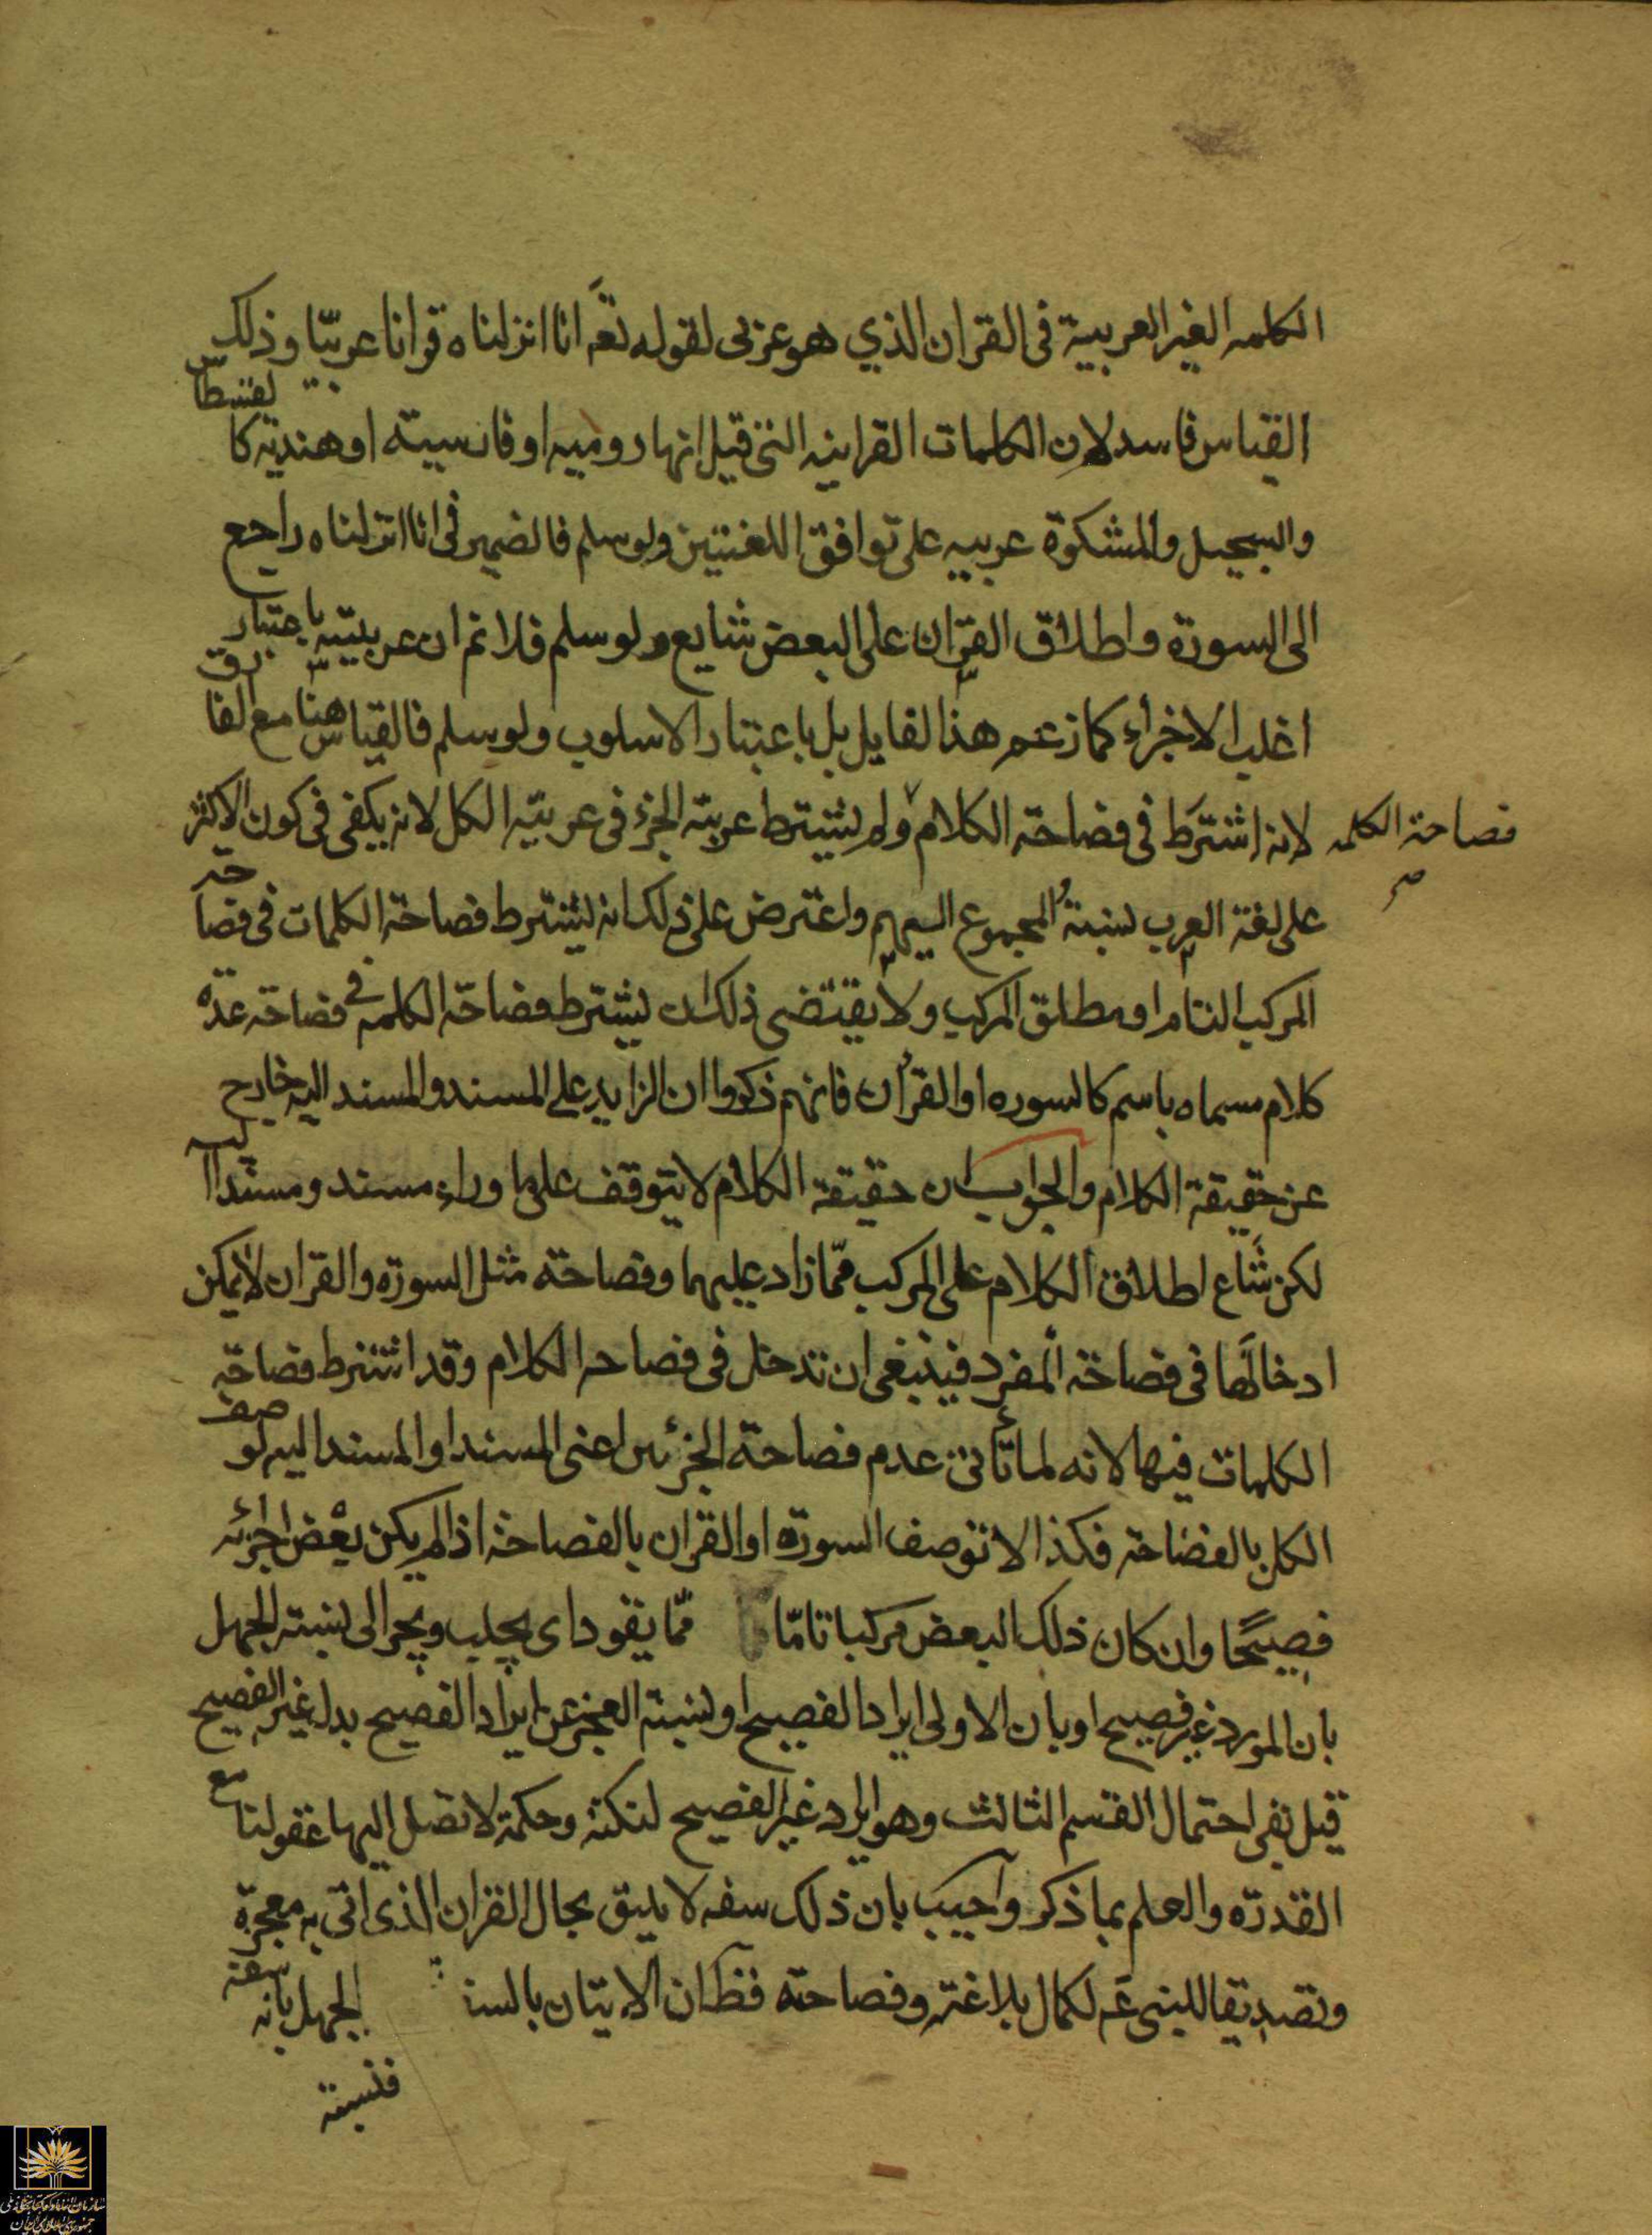 الكلمه الغير العربيية فى القران الذي هو عربى لقوله تعَه انا انزلناه قرانا عربيّا وذلك
القياس فاسد لان الكلمات القرانيه التى قيل انها روميه او فارسيته او هنديه كالقسطاس
والسجيل والمشكوة عربيه على توافق اللغتين ولو سلم فالضمير فى انا انزلناه راجع
الى السورة واطلاق القران على البعض شايع ولو سلم فلا نم ان عربيته باعتبار
اغلب الاخراء كما زعم هذا لقايل بل باعتبار الاسلوب ولو سلم فالقياس هنا مع الفارق
لانه اشترط فى فصاحة الكلام ولم يشترط عربية الجزء فى عربيته الكل لانه يكفى فى كون الاكثر
فصاحة الكلمه صح
على لغة العرب نسبة المجموع اليهم واعترض على ذلك انه يشترط فصاحة الكلمات فى فصاحة
المركب التام او مطلق المركب ولا يقتضى ذلك ان يشترط فصاحة الكلمه فى فصاحة عدة
كلام مسماه باسم كالسوره او القرأن فانهم ذكروا ان الزايد على المسند والمسند اليه خارج
عن حقيقة الكلام والجواب ان حقيقة الكلام لا يتوقف على ما وراء مسند ومسند اليه
لكن شَاع اطلاق الكلام على المركب ممّا زاد عليهما وفصاحة مثل السورة والقران لا يمكن
ادخالها فى فصاحة المفرد فينبغى ان تدخل فى فصاحه الكلام وقد اشترط فصاحة
الكلمات فيها لانه لما تأتى عدم فصاحة الجزئين اعنى المسند او المسند اليه لو صف
الكل بالفصاحة فكذا لا توصف السورة او القران بالفصاحة اذا لم يكن بعْض اجزئه
فصيحًا وان كان ذلك البعض مركبا تامّا ممّا يقود اى يجلب ويجر الى نسبة الجهل
بان المورد غير فصيح او بان الاولى ايراد الفصيح او نسبة العجز عن ايراد الفصيح بدل غير الفصيح
قيل بقى احتمال القسم الثالث وهو ايراد غير الفصيح لنكتة وحكمة لا تصل اليها عقولنا مع
القدرة والعلم بما ذكر واجيب بان ذلك سفه لا يليق بحال القران الذى اتى به معجزة
وتصديقا للنبى عَم لكمال بلاغته وفصاحته فظَ ان الاتيان بالسفه الجهل بانه
فنسبة